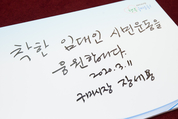 착한 임대인 시민운동을
응원합니다.
2020. 3. 11
구미시장 장세용